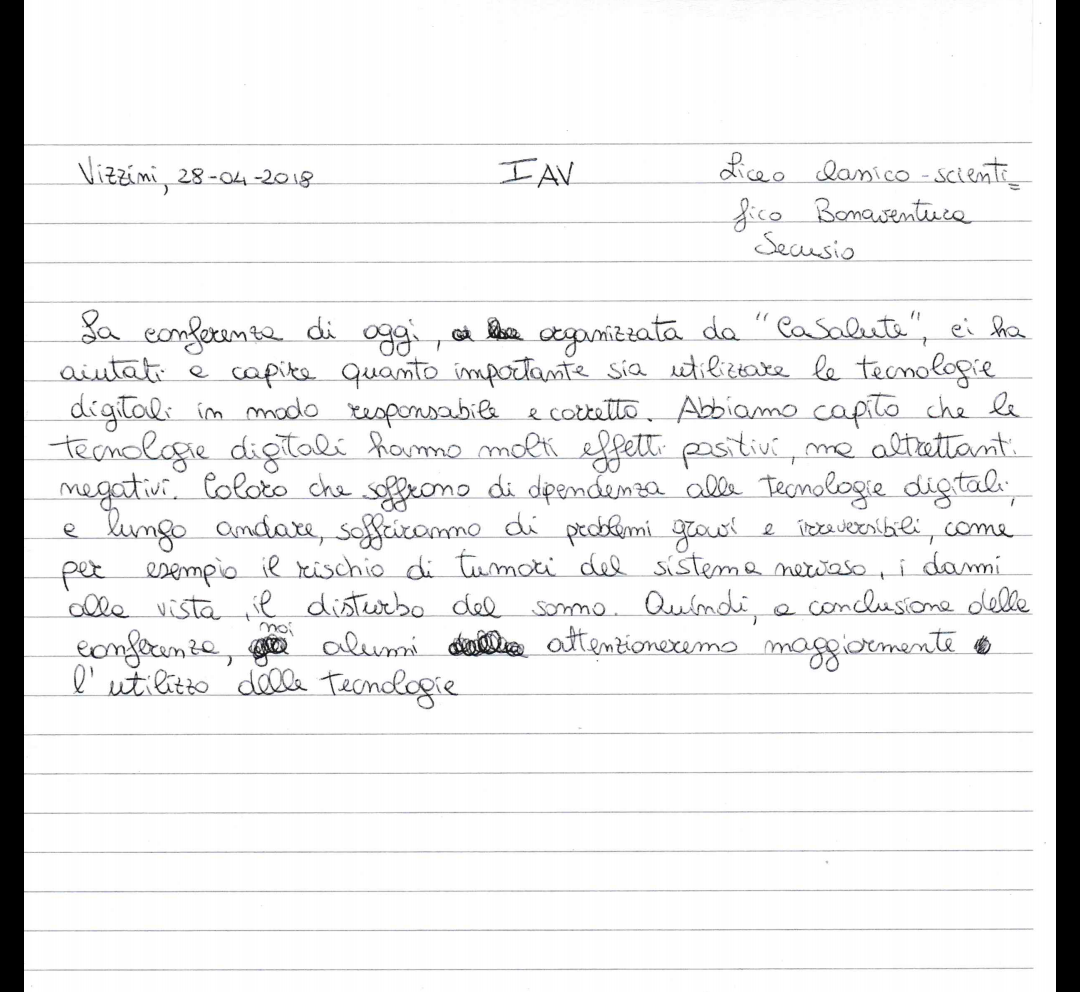 Vizzini, 28-04-2018 I AV Liceo classico-scienti=
fico Bonaventura
Secusio
La conferenza di oggi, organizzata da "CaSalute", ci ha
aiutati a capire quanto importante sia utilizzare le tecnologie
digitali in modo responsabile e corretto. Abbiamo capito che le
tecnologie digitali hanno molti effetti positivi, ma altrettanti
negativi. Coloro che soffrono di dipendenza alle tecnologie digitali,
a lungo andare, soffriranno di problemi gravi e irreversibili, come
per esempio il rischio di tumori del sistema nervoso, i danni
alla vista, il disturbo del sonno. Quindi, a conclusione della
conferenza, noi alunni attenzioneremo maggiormente
l'utilizzo delle tecnologie